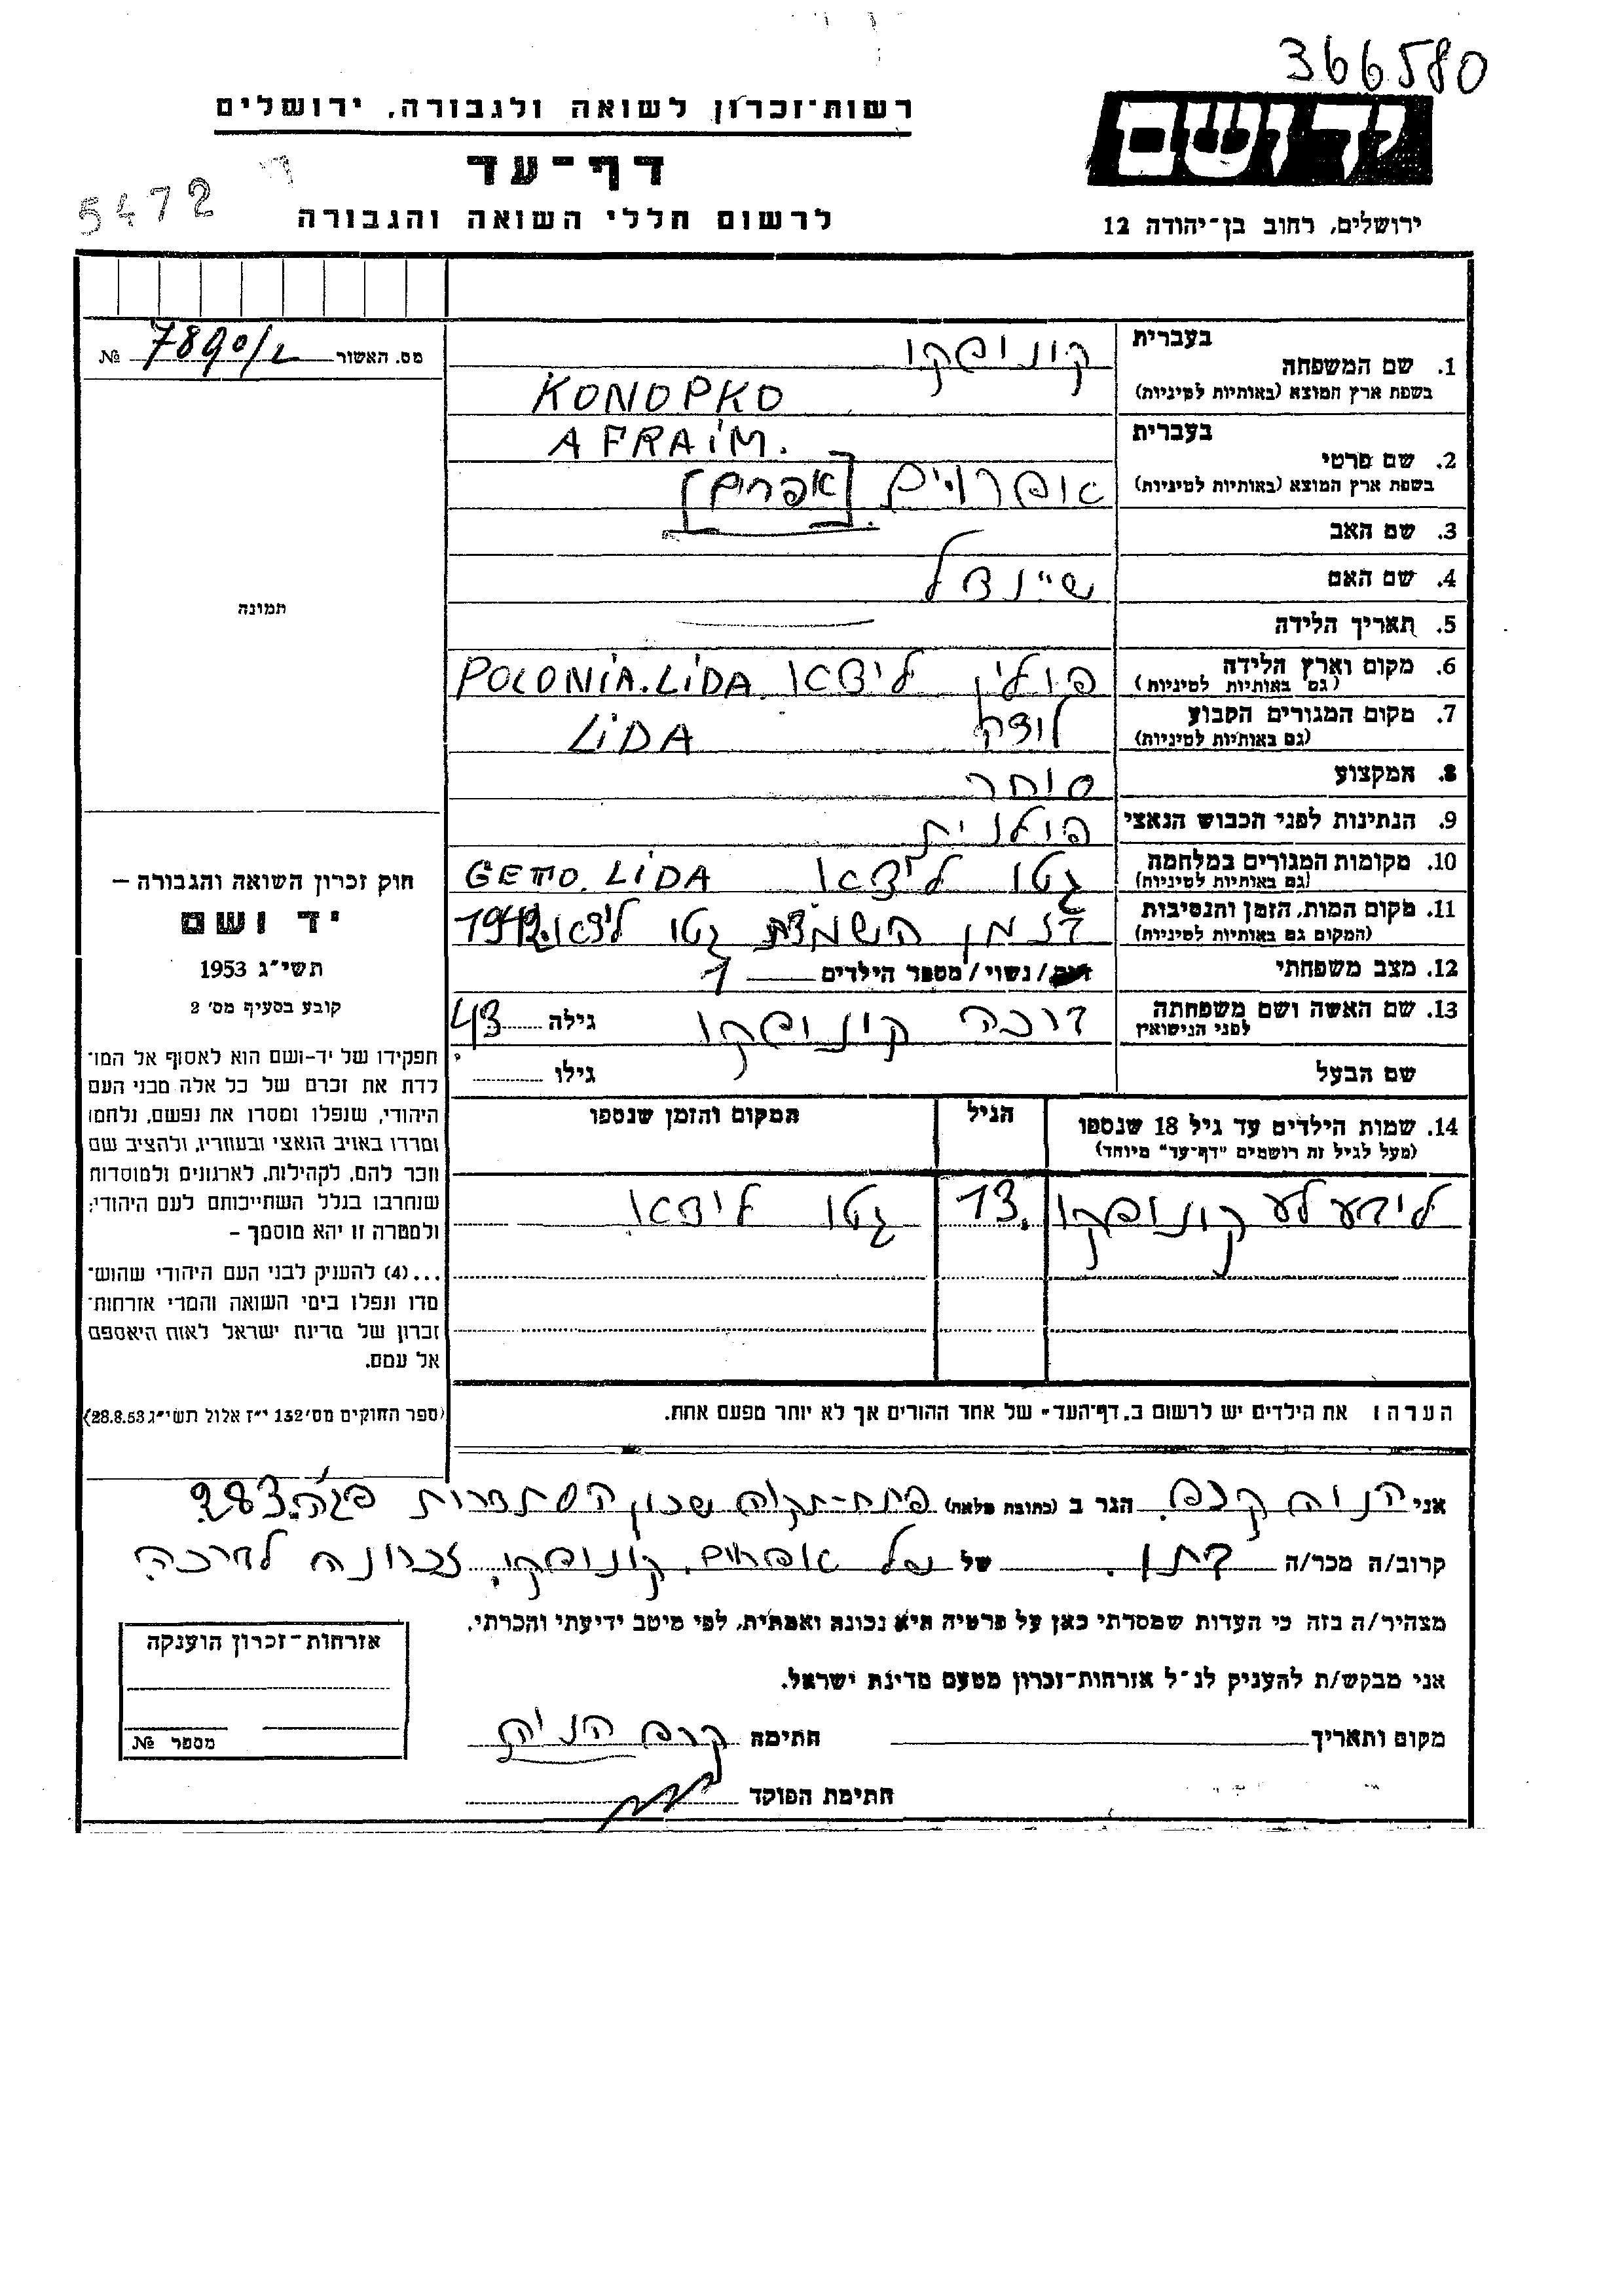 366580
רשות-זכרון לשואה ולגבורה, ירושלים
יד ושם
דף-עד
5472
לרשום חללי השואה והגבורה
ירושלים, רחוב בן-יהודה 12
מס. האשור 7890/2 №
תמונה
חוק זכרון השואה והגבורה –
יד ושם
תשי״ג 1953
קובע בסעיף מס׳ 2
תפקידו של יד-ושם הוא לאסוף אל המו־
לדת את זכרם של כל אלה מבני העם
היהודי, שנפלו ומסרו את נפשם, נלחמו
ומרדו באויב הנאצי ובעוזריו, ולהציב שם
וזכר להם, לקהילות, לארגונים ולמוסדות
שנחרבו בגלל השתייכותם לעם היהודי;
ולמטרה זו יהא מוסמך –
...(4) להעניק לבני העם היהודי שהוש־
מדו ונפלו בימי השואה והמרי אזרחות־
זכרון של מדינת ישראל לאות היאספם
אל עמם.
(ספר החוקים מס׳ 132 י״ז אלול תשי״ג 28.8.53)
בעברית
1. שם המשפחה קונופקו
בשפת ארץ המוצא (באותיות לטיניות) KONOPKO
בעברית AFRAiM.
2. שם פרטי
בשפת ארץ המוצא (באותיות לטיניות) אפרויים [אפרים]
3. שם האב
4. שם האם שיינדל
5. תאריך הלידה
6. מקום וארץ הלידה פולין לידאו POLONiA. LiDA
(גם באותיות לטיניות)
7. מקום המגורים הקבוע לידה LiDA
(גם באותיות לטיניות)
8. המקצוע סוחר
9. הנתינות לפני הכבוש הנאצי פולנית
10. מקומות המגורים במלחמה גטו לידאו GETTO. LiDA
(גם באותיות לטיניות)
11. מקום המות, הזמן והנסיבות בזמן השמדת גטו לידאו. 1942
(המקום גם באותיות לטיניות)
12. מצב משפחתי /נשוי/ מספר הילדים 1
13. שם האשה ושם משפחתה דרכה קונופקו גילה 43
לפני הנישואין
שם הבעל גילו
14. שמות הילדים עד גיל 18 שנספו הגיל המקום והזמן שנספו
(מעל לגיל זה רושמים "דף-עד" מיוחד)
קונופקו 13. גטו לידאו
הערה: את הילדים יש לרשום ב„דף-העד" של אחד ההורים אך לא יותר מפעם אחת.
אני הניה קרפ. הגר ב (כתובת מלאה) פתח-תקוה שכון הסתדרות
קרוב/ה מכר/ה של אפרים קונופקו.
מצהיר/ה בזה כי העדות שמסרתי כאן על פרטיה היא נכונה ואמתית, לפי מיטב ידיעתי והכרתי.
אני מבקש/ת להעניק לנ״ל אזרחות-זכרון מטעם מדינת ישראל.
מקום ותאריך חתימה קרפ הניה
חתימת הפוקד
אזרחות-זכרון הוענקה
מספר №